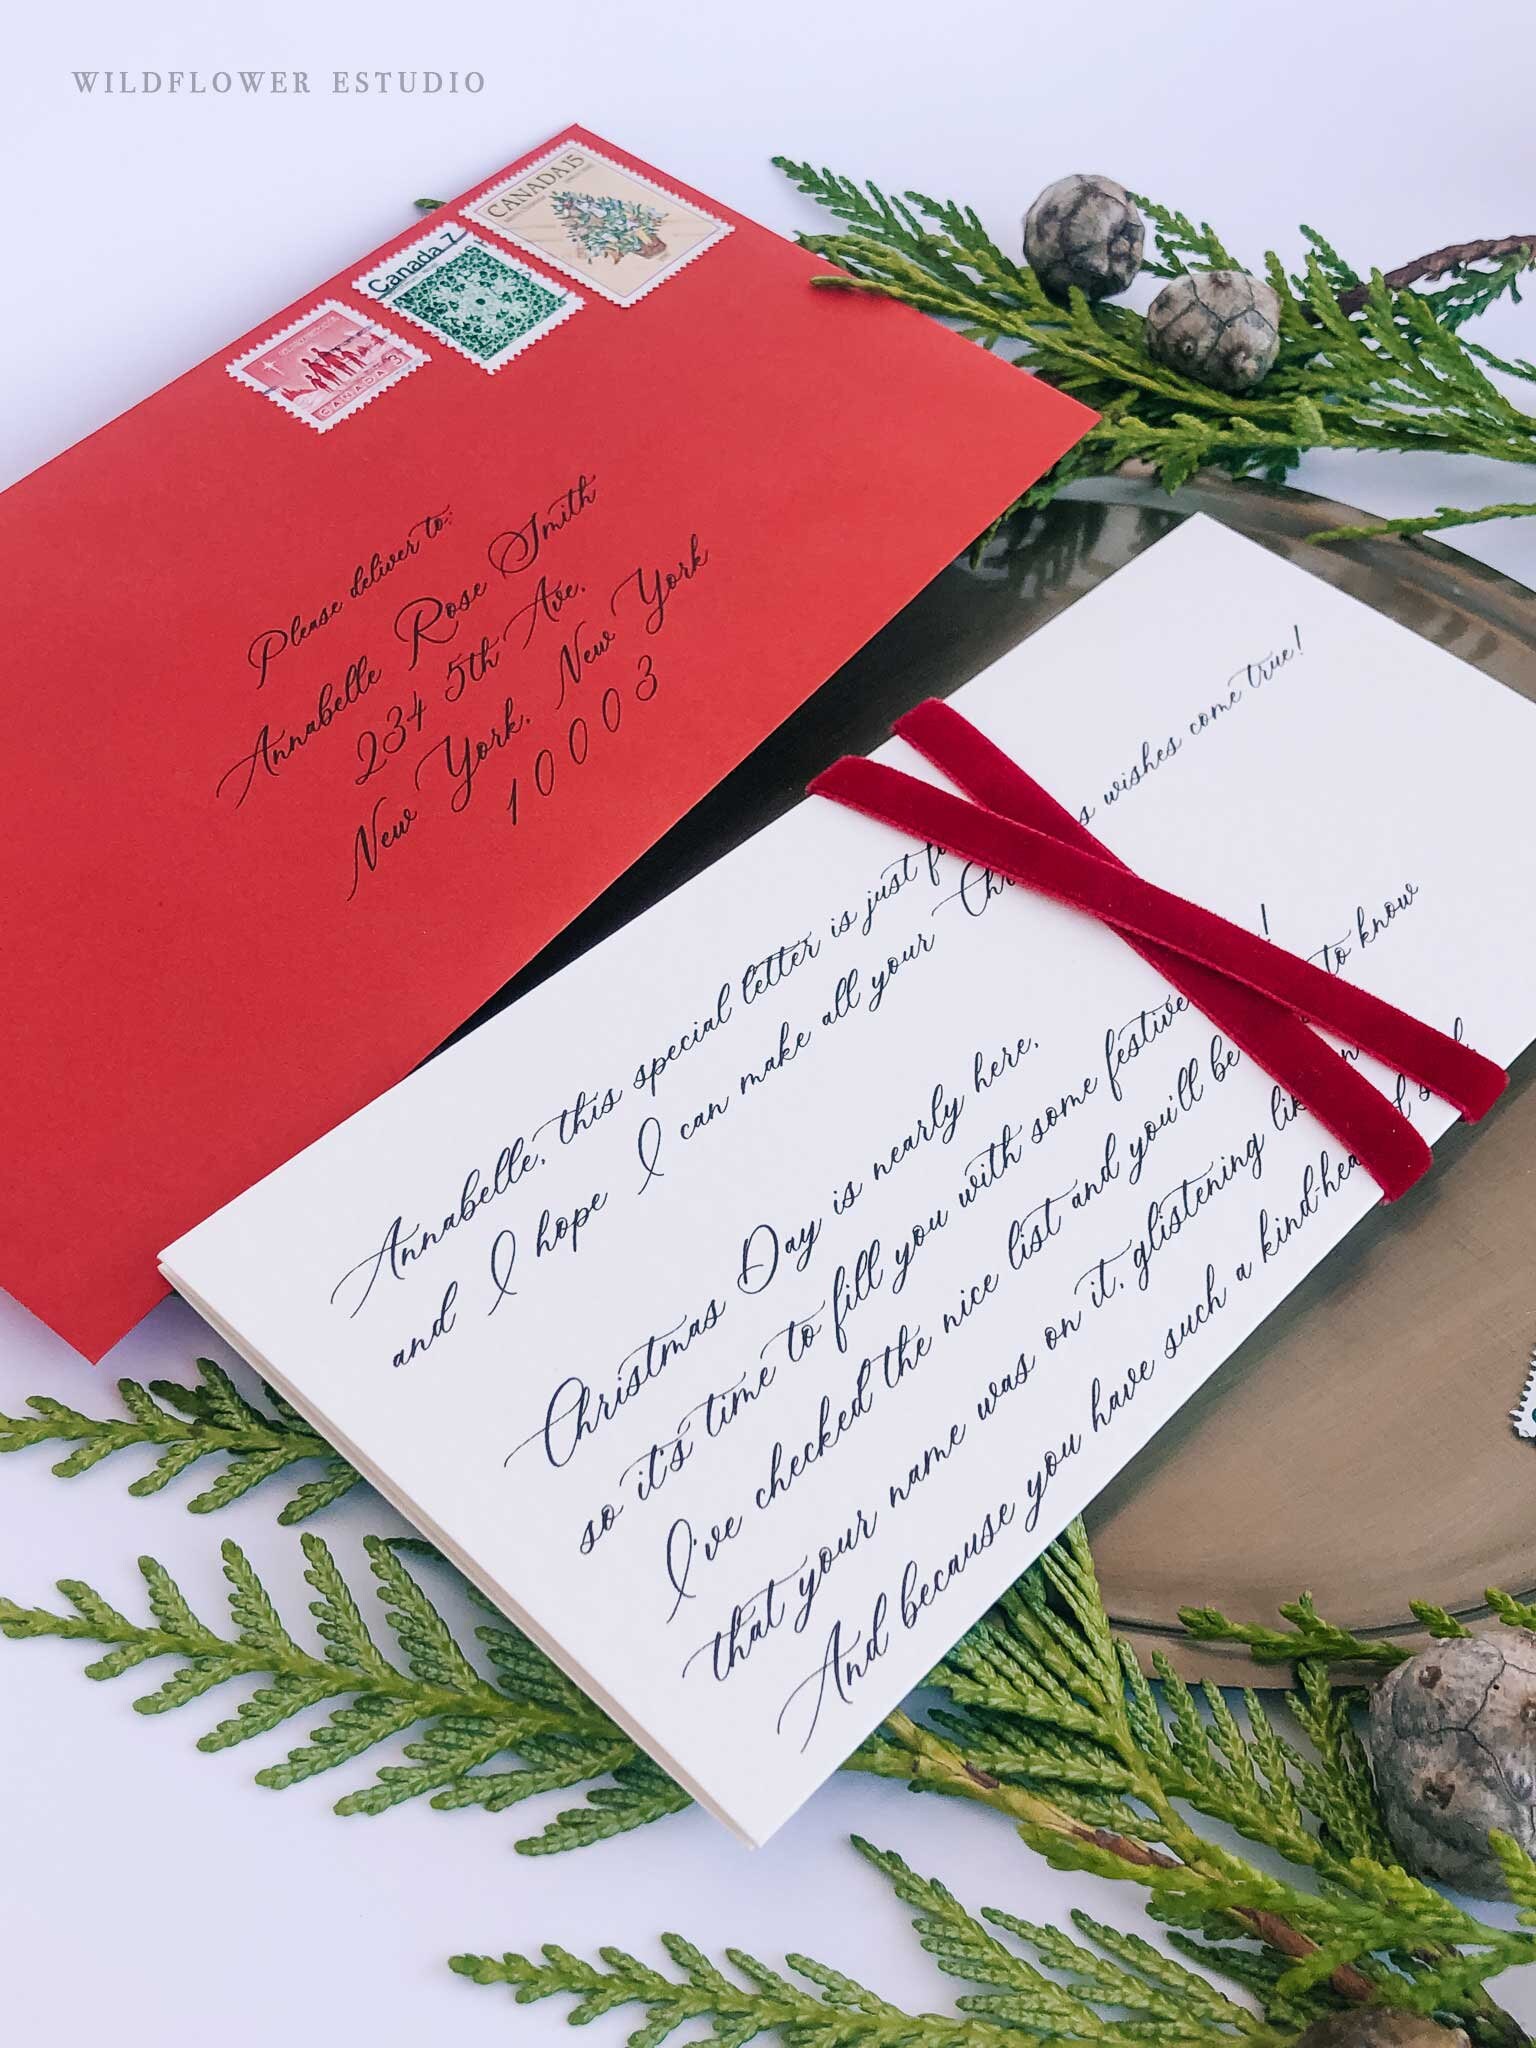 WILDFLOWER ESTUDIO
CANADA 15
Canada 7
CANADA 3
Please deliver to:
Annabelle Rose Smith
234 5th Ave.
New York, New York
10003
Annabelle, this special letter is just
and I hope I can make all your wishes come true!
Christmas Day is nearly here,
so it's time to fill you with some festive !
I've checked the nice list and you'll be to know
that your name was on it, glistening
And because you have such a